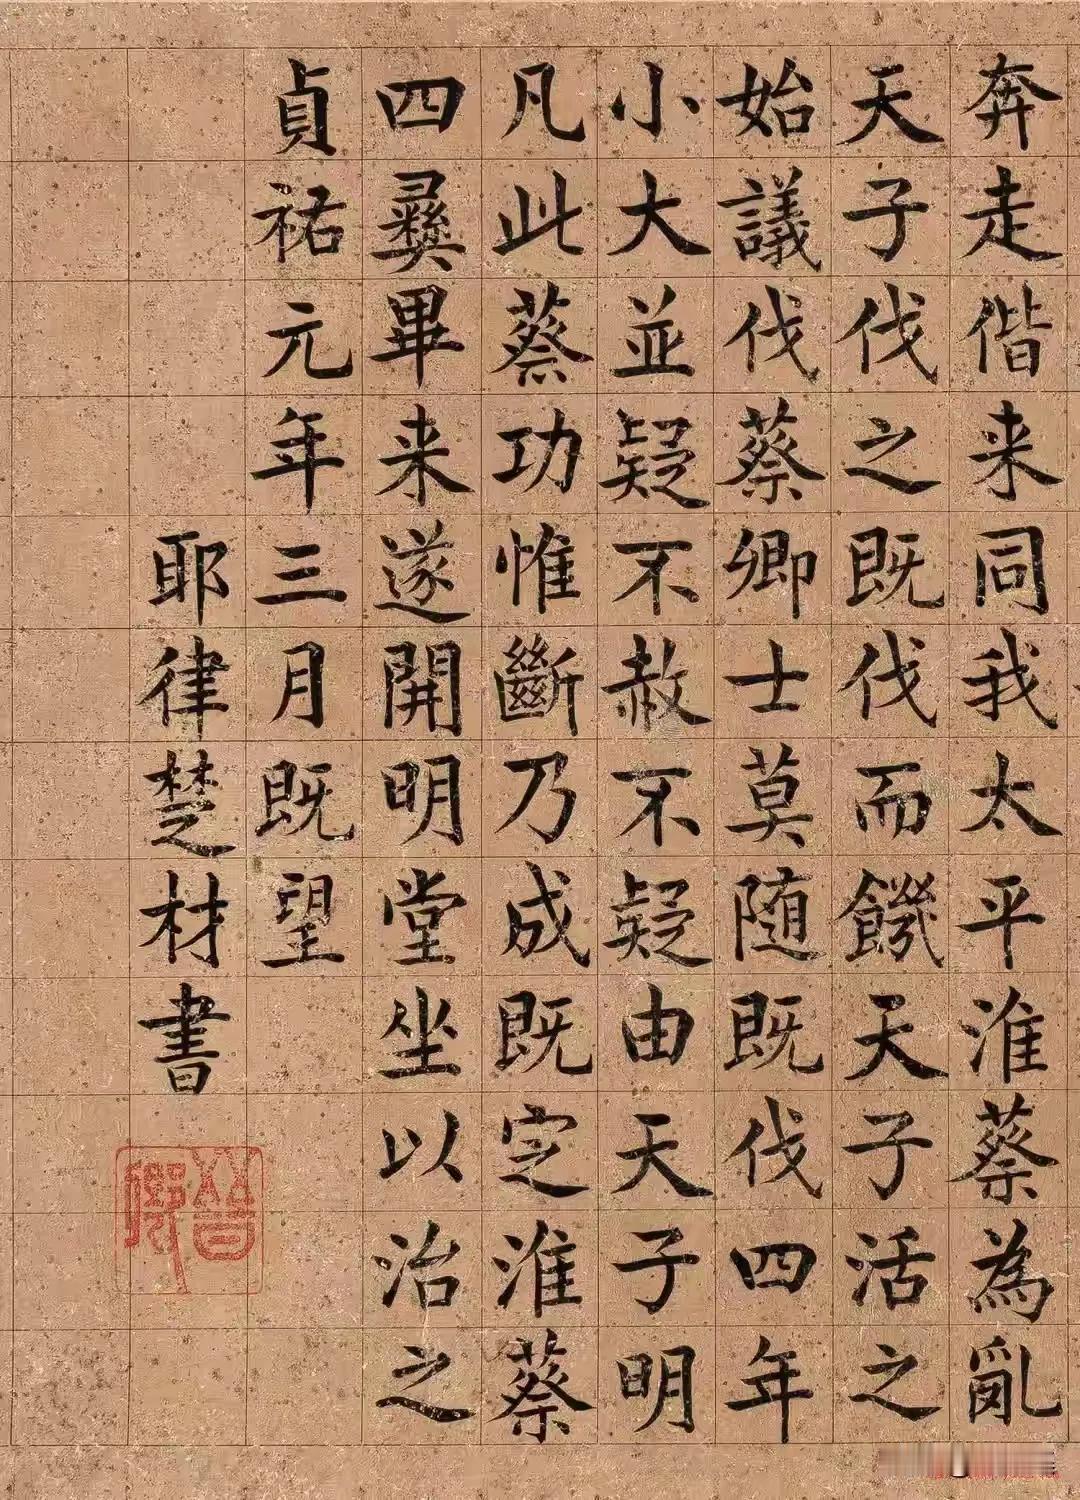 奔走偕来同我太平淮蔡為亂
天子伐之既伐而饑天子活之
始議伐蔡卿士莫随既伐四年
小大並疑不赦不疑由天子明
凡此蔡功惟斷乃成既定淮蔡
四彝畢来遂開明堂坐以治之
貞祐元年三月既望
耶律楚材書
晉卿